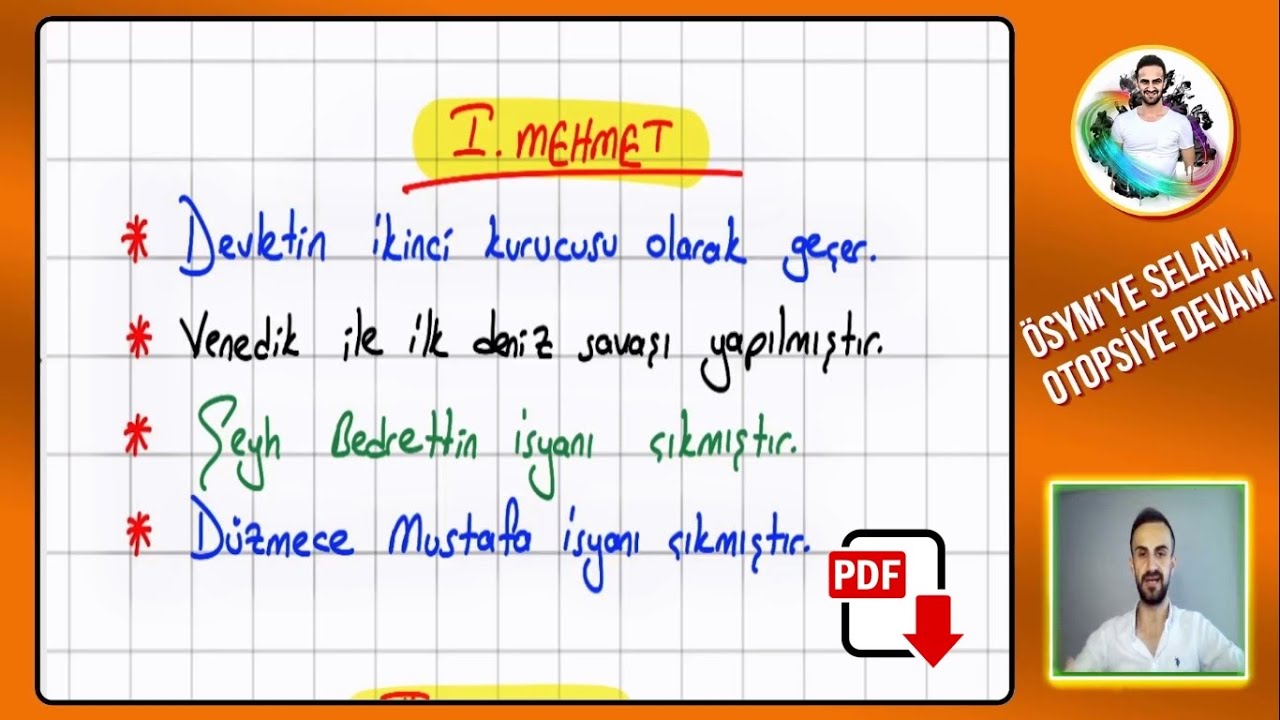 I. MEHMET
* Devletin ikinci kurucusu olarak geçer.
* Venedik ile ilk deniz savaşı yapılmıştır.
* Şeyh Bedrettin isyanı çıkmıştır.
* Düzmece Mustafa isyanı çıkmıştır.
PDF
ÖSYM'YE SELAM,
OTOPSİYE DEVAM